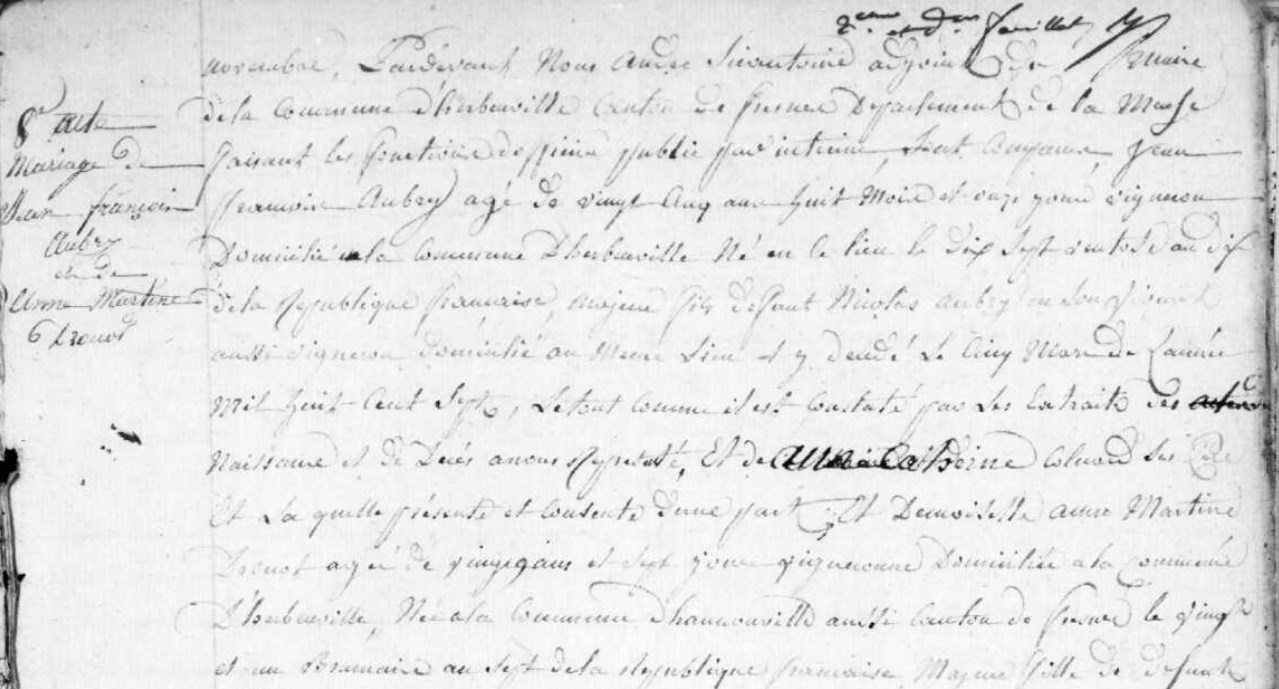 2eme et dernier feuillet
novembre, Pardevant Nous André Sivantoine adjoint de Mr le maire
8e acte
Mariage de
Jean françois
Aubry
et de
Anne Martine
Drouot
de la Commune d'herbeuville Canton de fresnes Departement de la Meuse
faisant les fonctions d'officier public par interime, Sont Comparus, Jean
francois Aubry agé de vingt Cinq ans huit Mois et onze jours vigneron
Domicilié en la Commune D'herbeuville Né en ce lieu le dix Sept ventose an dix
de la Republique francaise, majeur fils deffunt Nicolas aubry en son vivant
aussi vigneron domicilié au Meme Lieu et y décédé Le Cinq Mars de L'année
Mil huit Cent Sept, Le tout Comme il est Constaté par Les Extraits des actes
Naissance et de Décès a nous Representé, Et de Catherine Colnard Ses
Et La quelle présente et Consente d'une part ; Et Demoiselle anne Martine
Drouot agée de ans et sept jours vigneronne Domiciliée a la Commune
D'herbeuville, Née a la Commune d'hannonville aussi Canton de fresnes le vingt
et un Brumaire an Sept de la Republique francaise Majeure fille de defunt